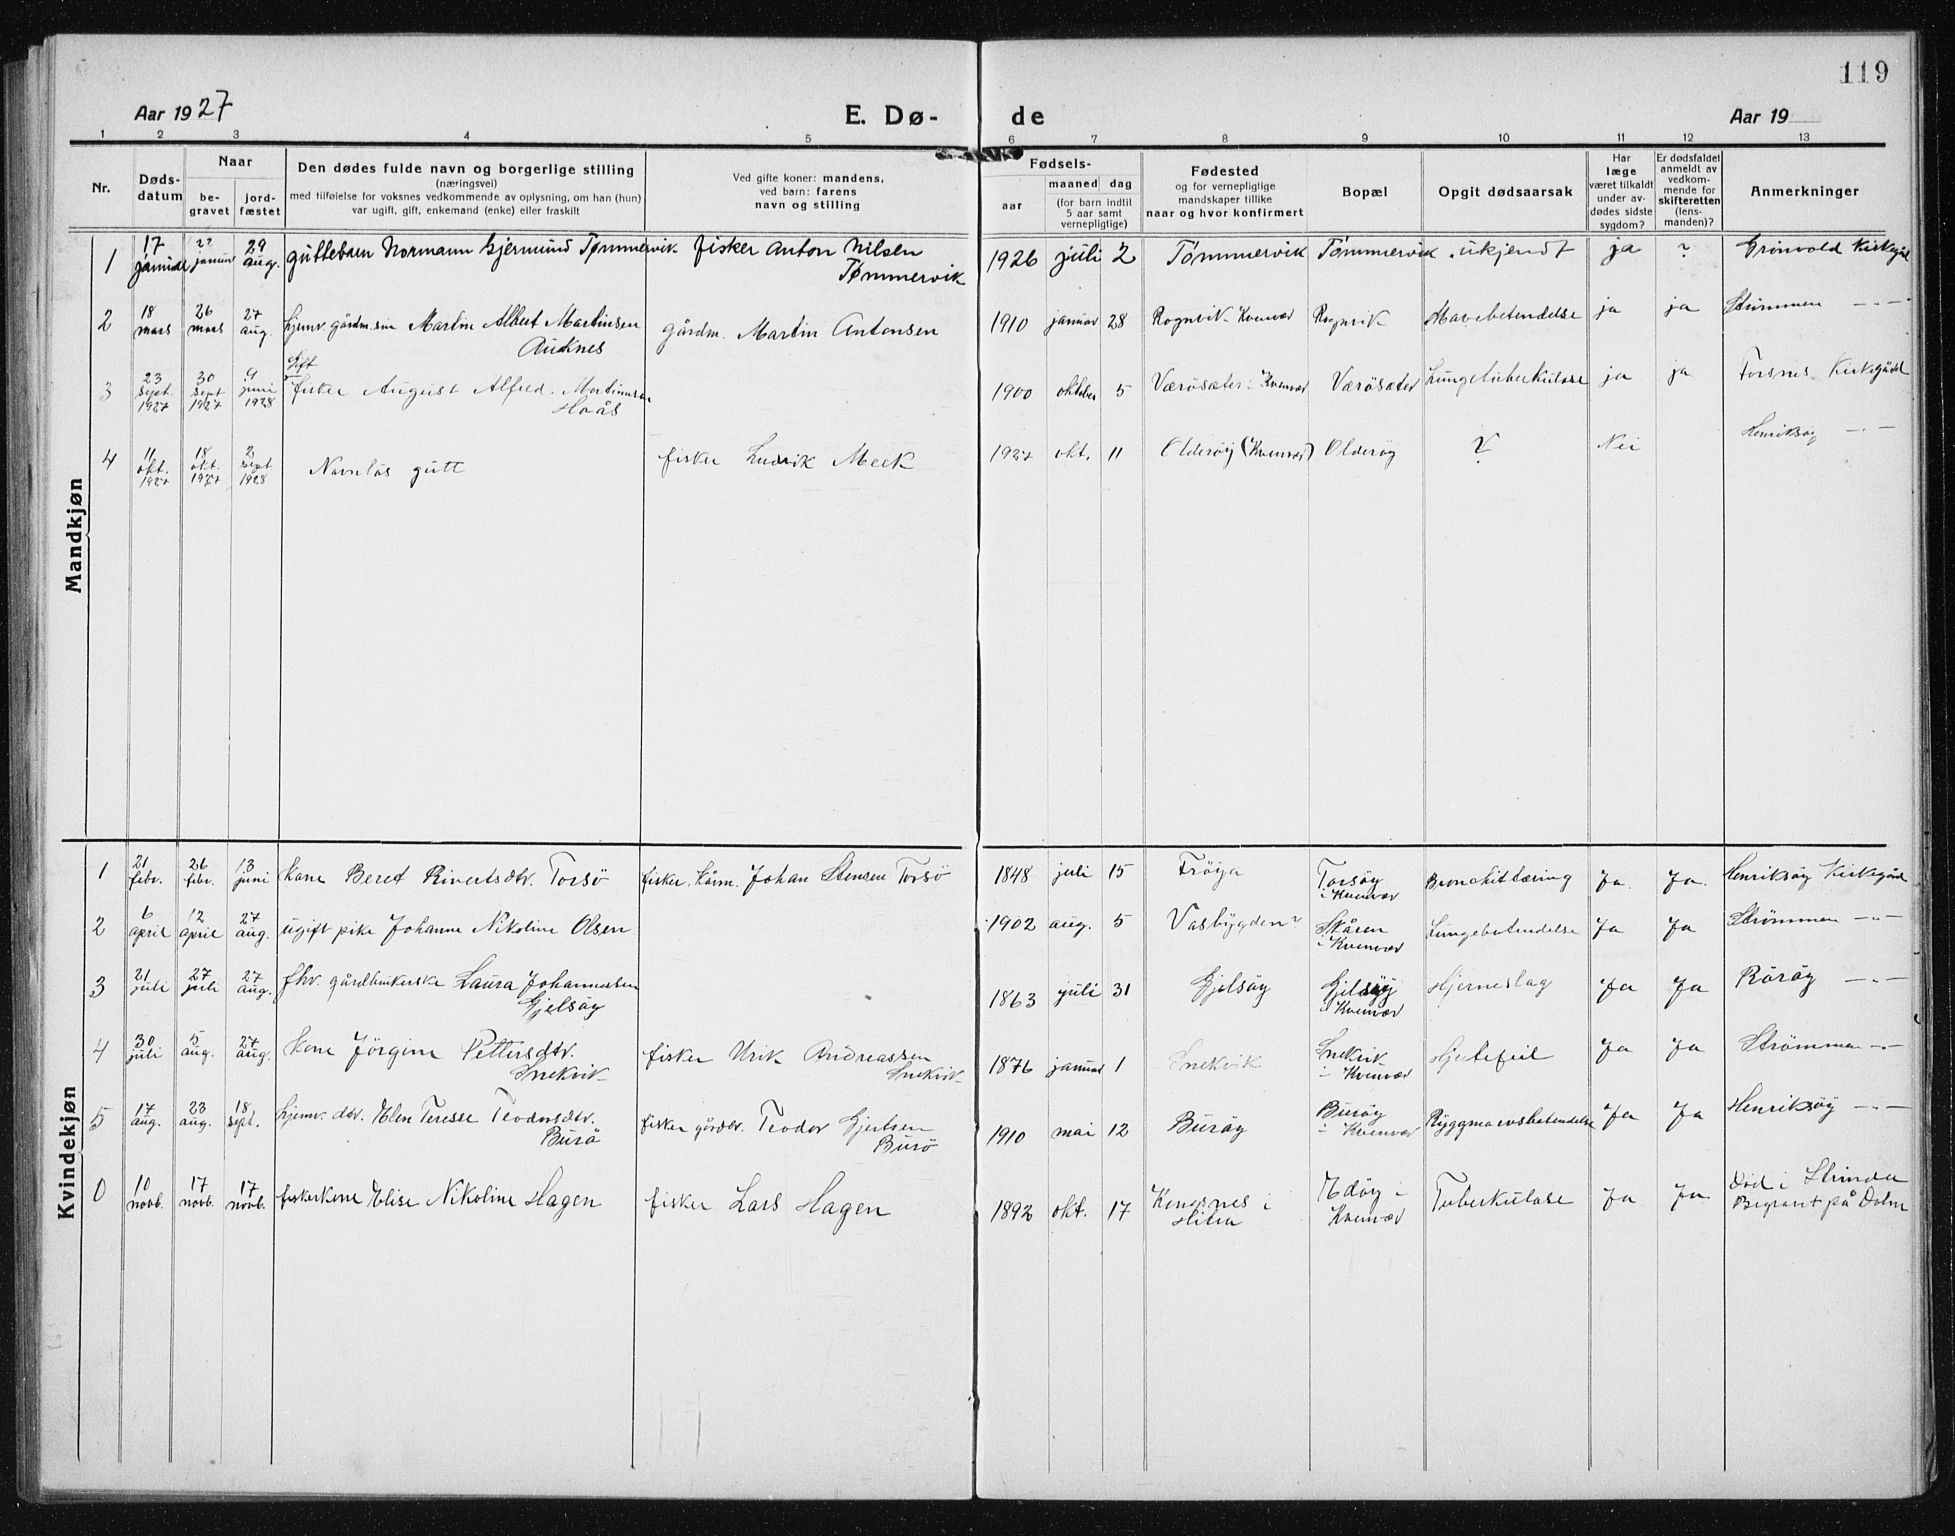 119
Aar 1927 E. Dø- de Aar 19
1 2 3 4 5 6 7 8 9 10 11 12 13
Nr. Døds-datum Naar be-gravet jord-fæstet Den dødes fulde navn og borgerlige stilling (næringsvei) med tilføielse for voksnes vedkommende av oplysning, om han (hun) var ugift, gift, enkemand (enke) eller fraskilt Ved gifte koner: mandens, ved barn: farens navn og stilling Fødsels- aar maaned dag (for barn indtil 5 aar samt vernepligtige) Fødested og for vernepligtige mandskaper tillike naar og hvor konfirmert Bopæl Opgit dødsaarsak Har læge været tilkaldt under av-dødes sidste sygdom? Er dødsfaldet anmeldt av vedkom-mende for skifteretten (lens-manden)? Anmerkninger
Mandkjøn
1 17 januar januar 29 aug. guttebarn Normann Gjermund Tømmervik fisker Anton Nilsen Tømmervik 1926 juli 2 Tømmervik Tømmervik ukjendt ja ? Grønvold Kirkegård
2 18 mars 26 mars 27 aug. hjemv. gårdm.søn Martin Albert Martinsen Auknes gårdm. Martin Antonsen 1910 januar 28 Rognvik Kvenvær Rognvik Mavebetendelse ja ja Strømmen -"-
3 23 sept. 1927 30 sept 1927 9 juni 1928 Gift fisker August Alfred Martinusen Hoås 1900 oktober 5 Værøsæter i Kvenvær Værøsæter Lungetuberkulose ja ja Forsnes Kirkegård
4 11 okt. 1927 18 okt. 1927 2 sept 1928 Navnløs gutt fisker Ludvik Meek 1927 okt. 11 Olderøy (Kvenvær) Olderøy ? Nei Henriksøy -"-
Kvindekjøn
1 21 febr. 26 febr. 13 juni Kone Beret Rivertsdtr. Torsø fisker, kårm. Johan Stensen Torsø 1848 juli 15 Frøya Torsøy i Kvenvær Bronchittæring Ja Ja Henriksøy Kirkegård
2 6 april 12 april 27 aug. ugift pike Johanne Nikoline Olsen 1902 aug. 5 Vasbygden? Skåren i Kvenvær Lungebetendelse Ja Ja Strømmen -"-
3 21 juli 27 juli 27 aug. fhv. gårdbrukerske Laura Johannessen Gjelsøy 1863 juli 31 Gjelsøy Gjelsøy i Kvenvær Hjerneslag Ja Ja Rørøy -"-
4 30 juli 5 aug. 27 aug. Kone Jörgine Pettersdtr. Snekvik fisker Urik Andreassen Snekvik 1876 januar 1 Snekvik Snekvik i Kvenvær Hjertefeil Ja Ja Strømmen -"-
5 17 aug. 23 aug. 18 sept. hjemv. dtr. Elen Teresse Teodorsdtr. Burø fisker gårdbr. Teodor Gjertsen Burø 1910 mai 12 Burøy Burøy i Kvenvær Ryggmarvsbetendelse Ja Ja Henriksøy -"-
0 10 novb. 17 novb. 17 novb. fiskerkone Elise Nikoline Hagen fisker Lars Hagen 1892 okt. 17 i Hitra Edøy i Kvenvær Tuberkulose Ja Ja Død i Strinda Begravet på Dolm